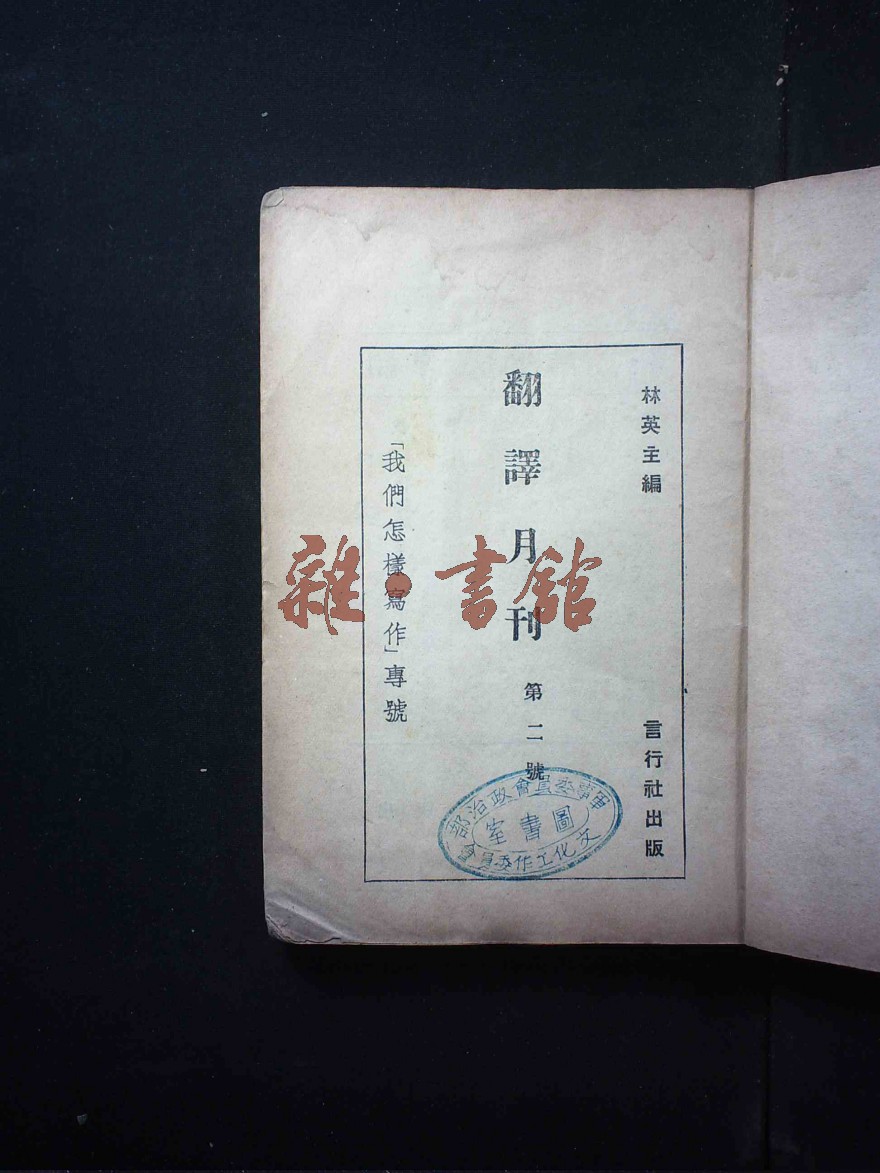 林英主編
言行社出版
翻譯月刊
第二號
「我們怎樣寫作」專號
軍事委員會政治部
圖書室
文化工作委員會
雜·書館